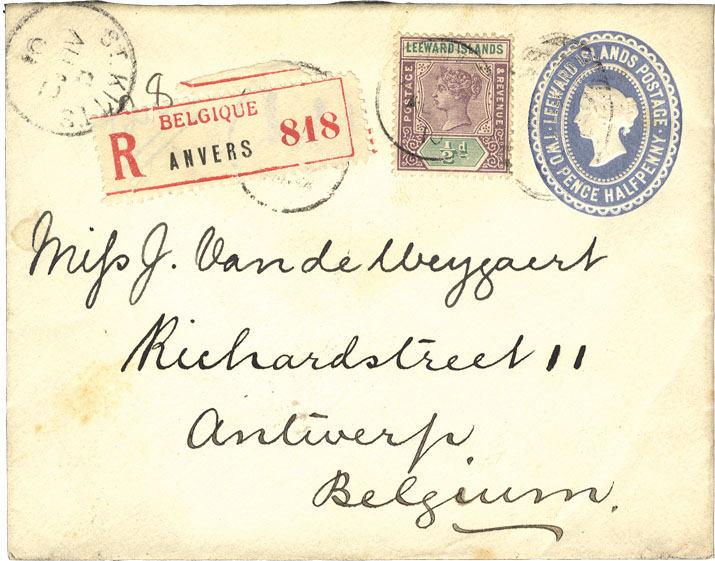 ST. KITTS
8
BELGIQUE
R
ANVERS
818
LEEWARD ISLANDS
POSTAGE
& REVENUE
½d
LEEWARD ISLANDS POSTAGE
TWO PENCE HALFPENNY
Miss J. Van de Weygaert
Richardstreet 11
Antwerp
Belgium.